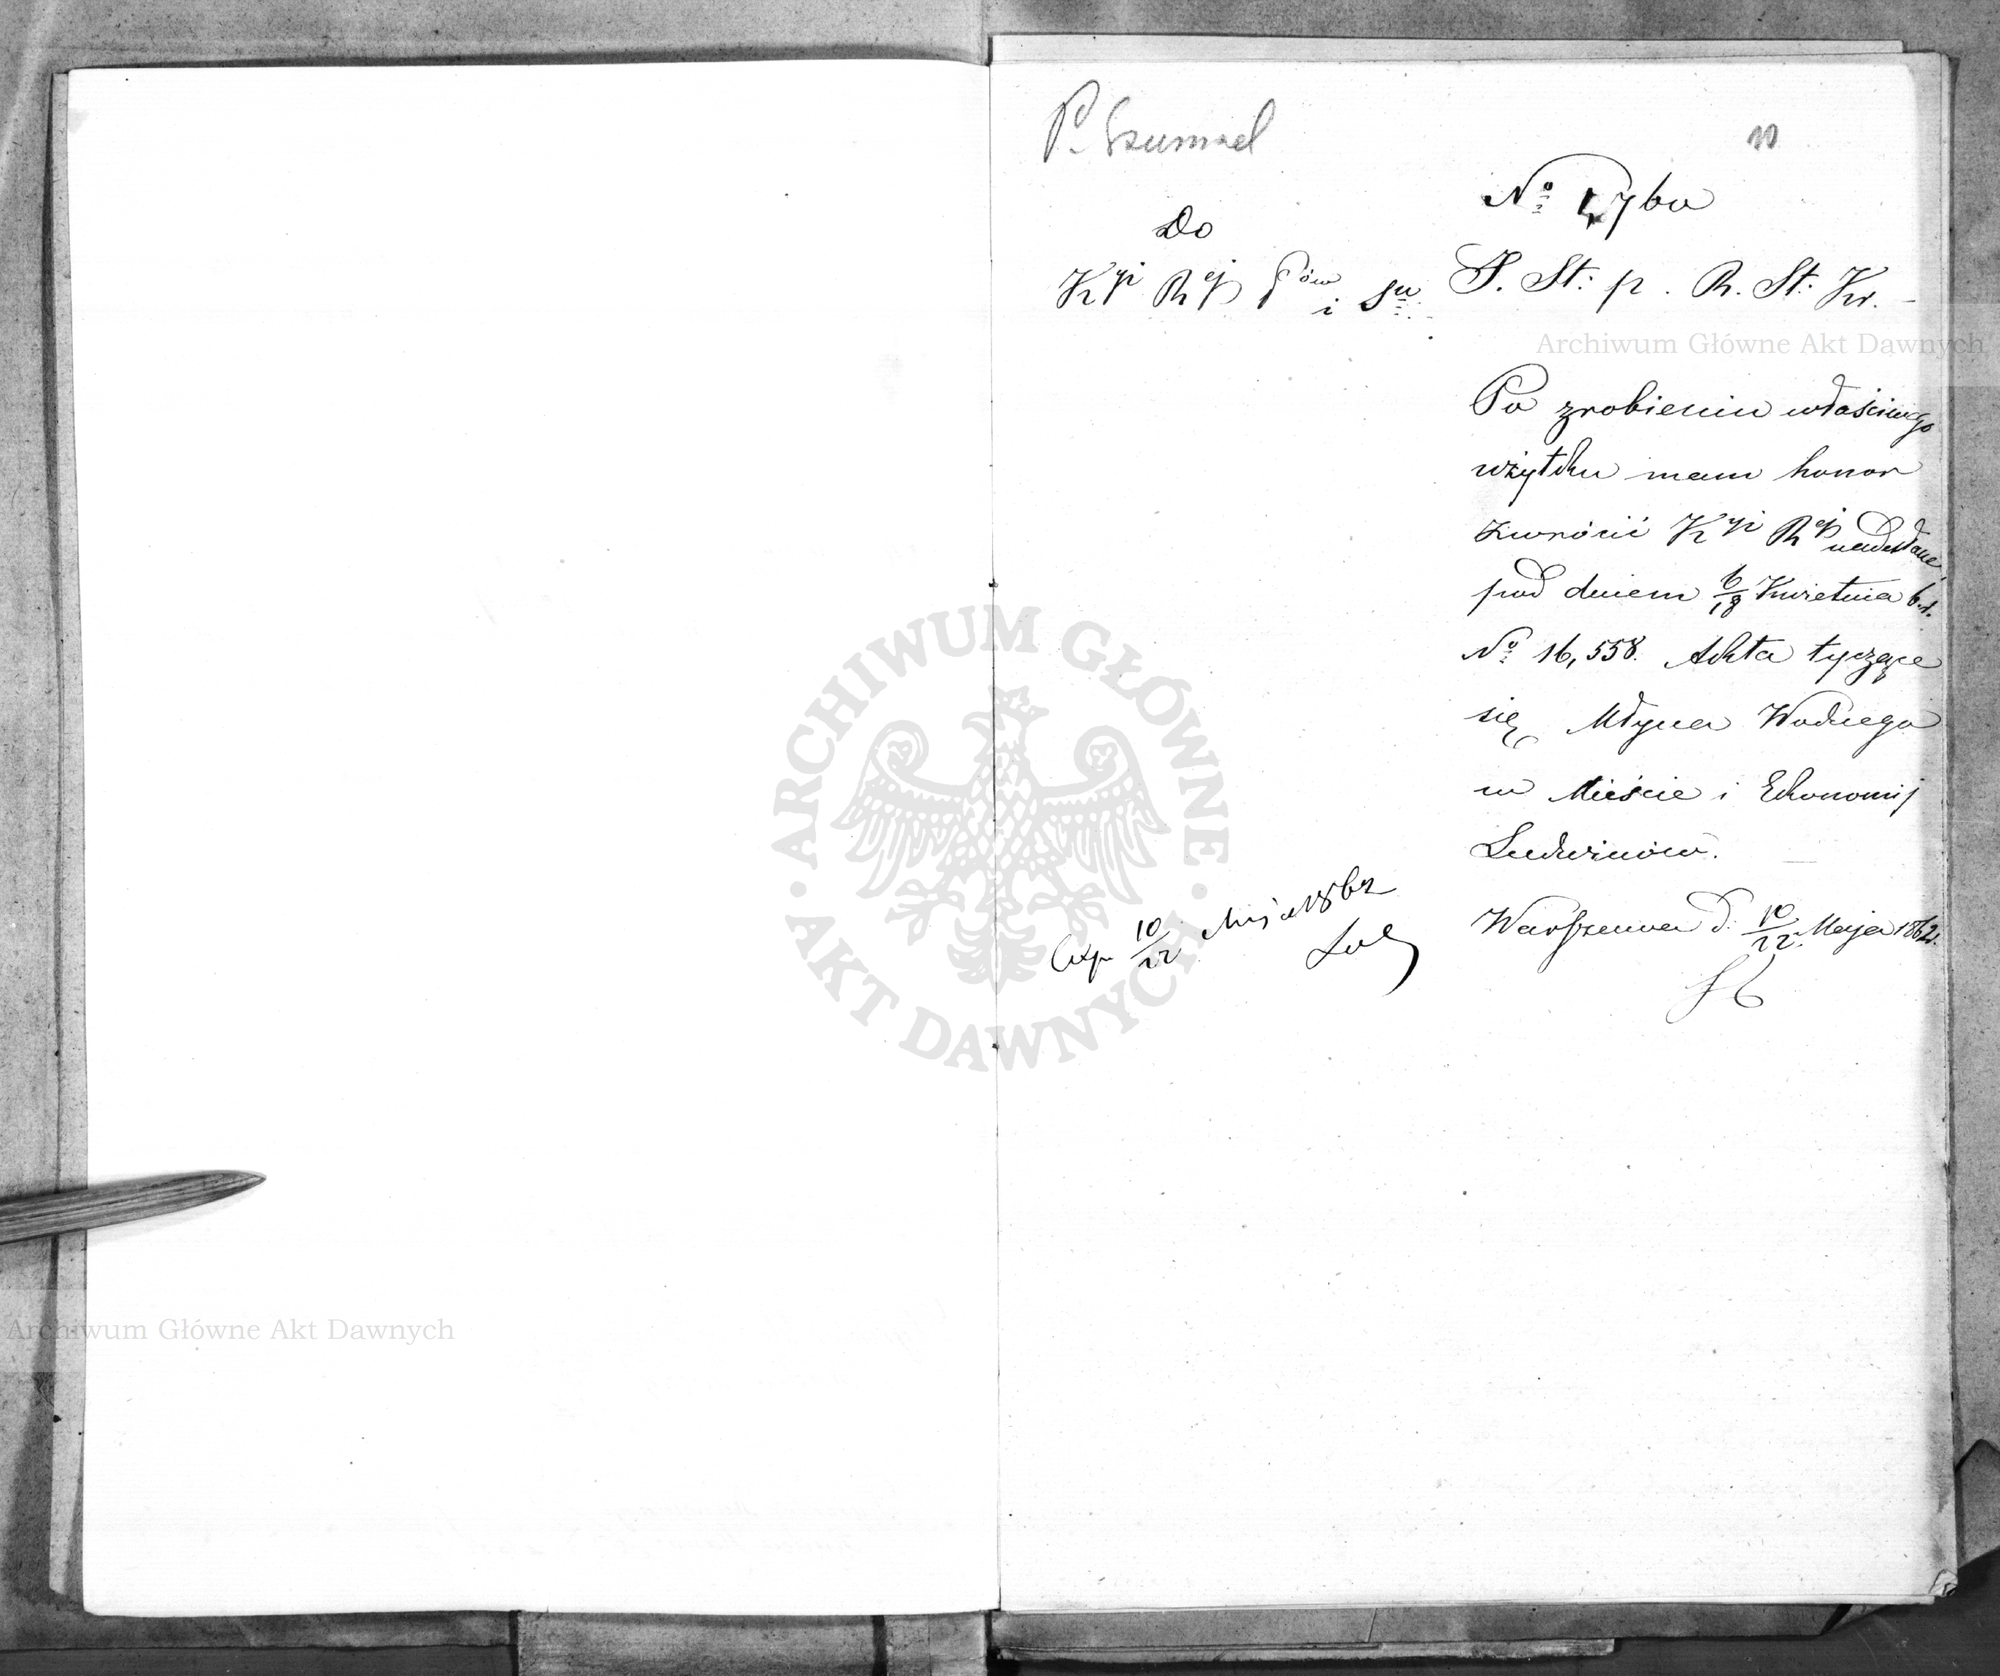 P. Szumael
10
Do
K<sup>yi</sup> R<sup>ej</sup> P<sup>ów</sup> i Su.
S. St: p. R. St: Kr.
Archiwum Główne Akt Dawnych
Po zrobieniu właściwego
użytku mam honor
zwrócić K<sup>yi</sup> R<sup>ej</sup> nadesłane
pod dniem 6/18 Kwietnia b.r.
N<sup>o</sup> 16,558. Akta tyczące
się Młyna Wodnego
w Mieście i Ekonomij
Ludwinów.
Warszawa d. 10/22 Maja 1862 r.
Exp. 10/22 Maja 1862
ARCHIWUM GŁÓWNE AKT DAWNYCH
Archiwum Główne Akt Dawnych